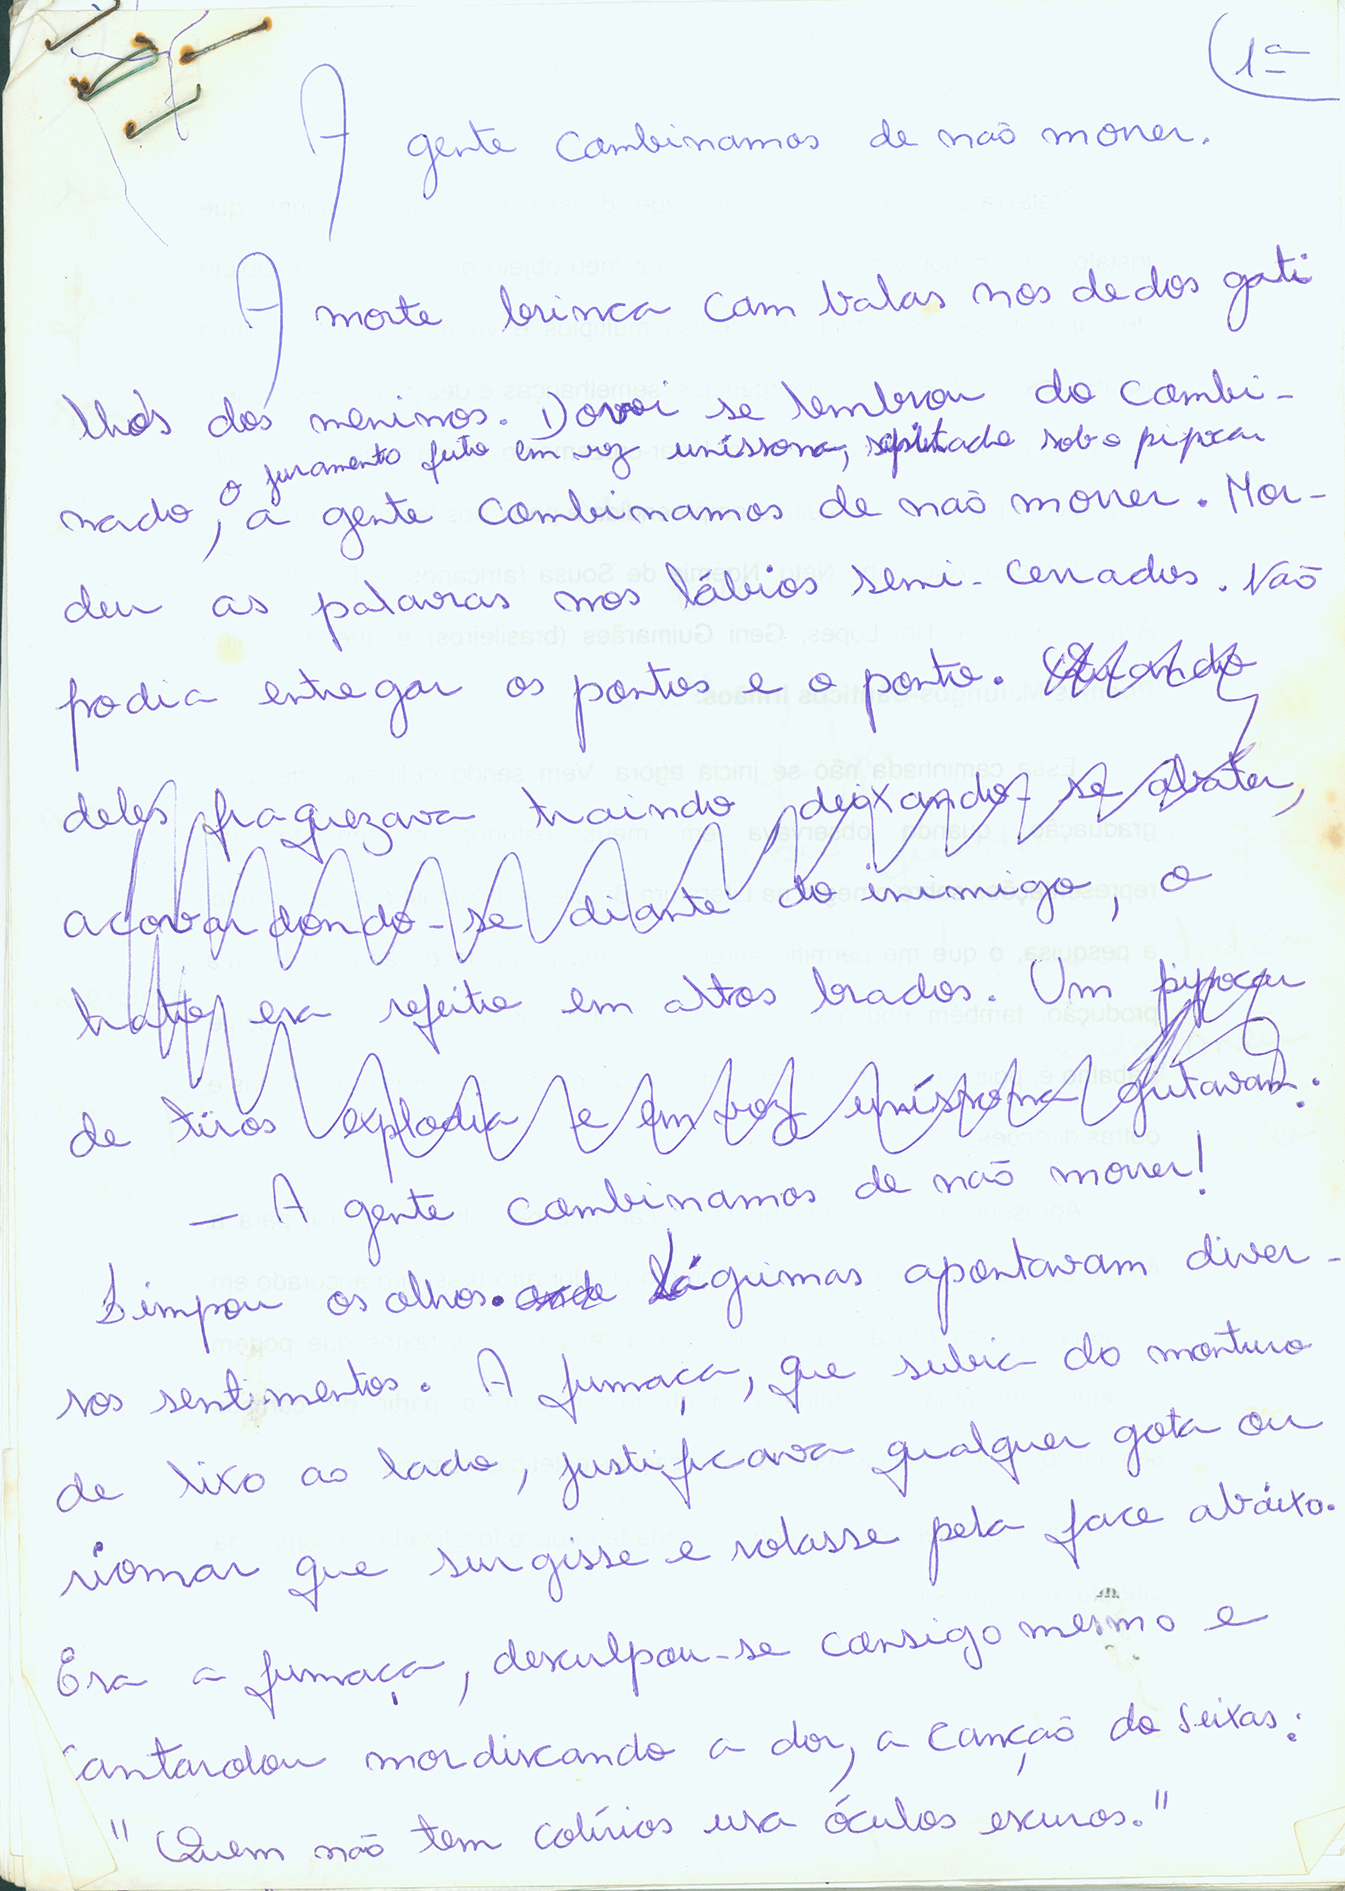 1ª
A gente combinamos de não morrer.
A morte brinca com balas nos dedos gati
lhos dos meninos. Dorvi se lembrou do combi-
o juramento feito em voz uníssona, sob o pipocar
nado, a gente combinamos de não morrer. Mor-
deu as palavras nos lábios semi-cerrados. Não
podia entregar os pontos e o ponto. Quando
deles fraquezava traindo, deixando-se abater,
acovardando-se diante do inimigo, o
trato era refeito em altos brados. Um pipocar
de tiros explodia e em voz uníssona gritavam:
— A gente combinamos de não morrer!
Limpou os olhos. Lágrimas apontavam diver-
sos sentimentos. A fumaça, que subia do monturo
de lixo ao lado, justificava qualquer gota ou
riomar que surgisse e rolasse pela face abaixo.
Era a fumaça, desculpou-se consigo mesmo e
cantarolou mordiscando a dor, a canção do Seixas:
"Quem não tem colírios usa óculos escuros."